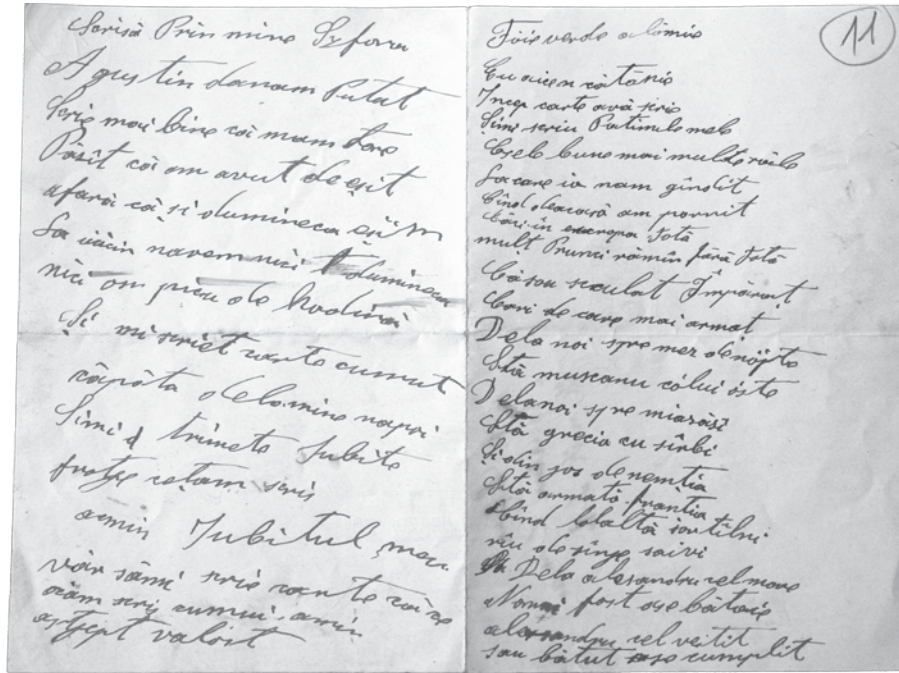 Scrisă Prin mine
Agustin danam Putat
Scrie mai bine că mam
Păsît că om avut de eșit
afară că și dumineca eșîm
La nici navem nici dumineca
nici om picu de hodină
Și mi scriet carte cumut
căpăta delamine napoi
Simi trimete Iubite
frate cetam scris
amin Iubitul meu
văr sămi scrie carte
amin
astfept valost
11
Foie verde alămîie
Eu aicea cătănie
Incep carte avă scrie
Șimi scriu Patimile mele
Cele bune mai multe răele
La care io nam gîndit
Cînd deacasă am pornit
Căci în europa totă
mult Prunci rămîn fără tată
Căsau sculat Împărat
Cari de care mai armat
Dela noi spre mez denópte
Stă muscanu cólui óste
Delanoi spre miazăsi
Stă grecia cu sîrbi
Și din jos de nemtia
Stă armată frantia
Cînd lalaltă sortîlni
rîu de sînge saivi
Dela alesandru cel mare
Nomai fost ase bătaie
alessandru cel veitit
sau bătut ase cumplit